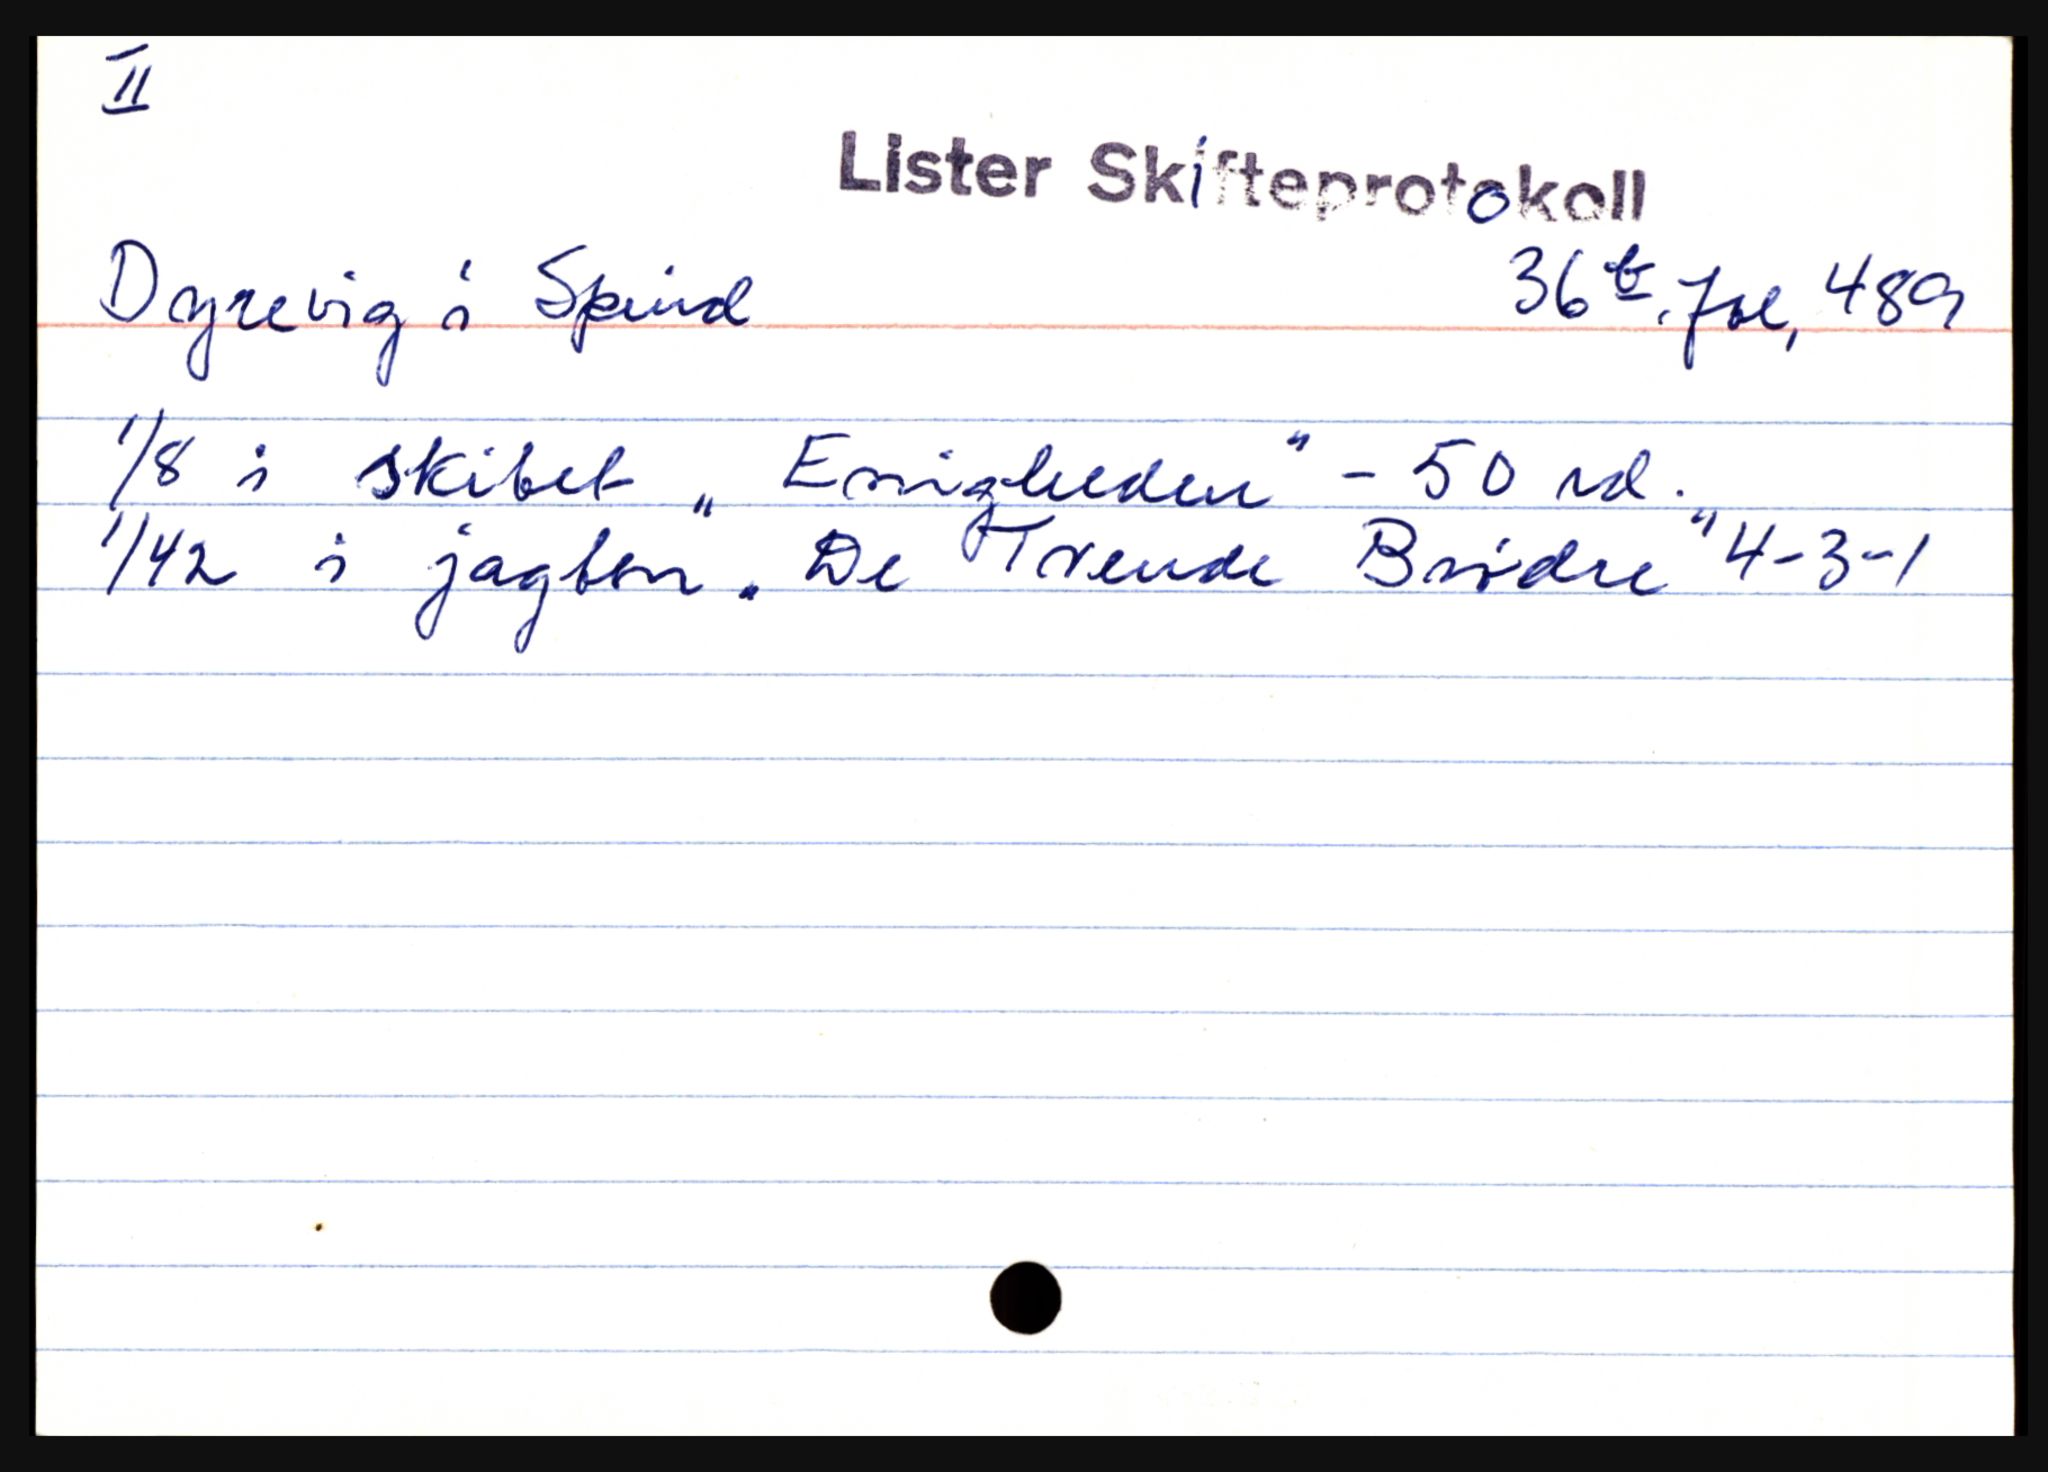 II
Lister Skifteprotokoll
Dyrevig i Spind 36 b. fol, 489
1/8 i skibet „Enigheden" - 50 rd.
1/42 i jagten „De Trende Brødre" 4-3-1